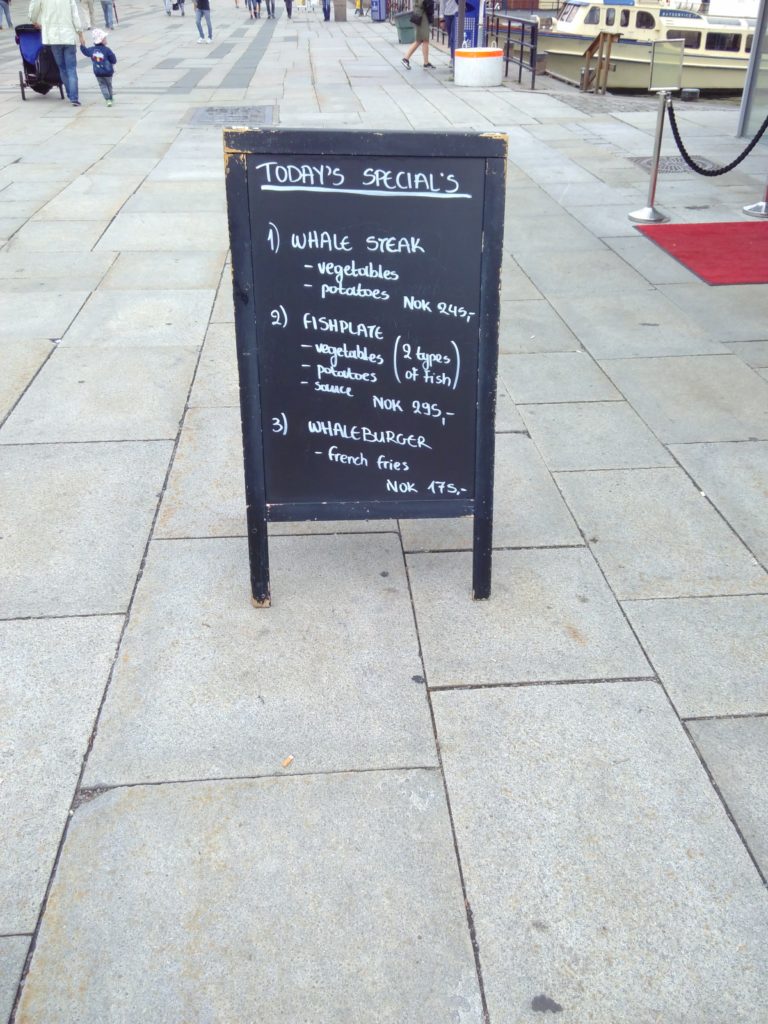 TODAY'S SPECIAL'S
1) WHALE STEAK
- vegetables
- potatoes NOK 245,-
2) FISHPLATE
- vegetables (2 types
- potatoes of fish)
- sauce
NOK 295,-
3) WHALEBURGER
- french fries
NOK 175,-